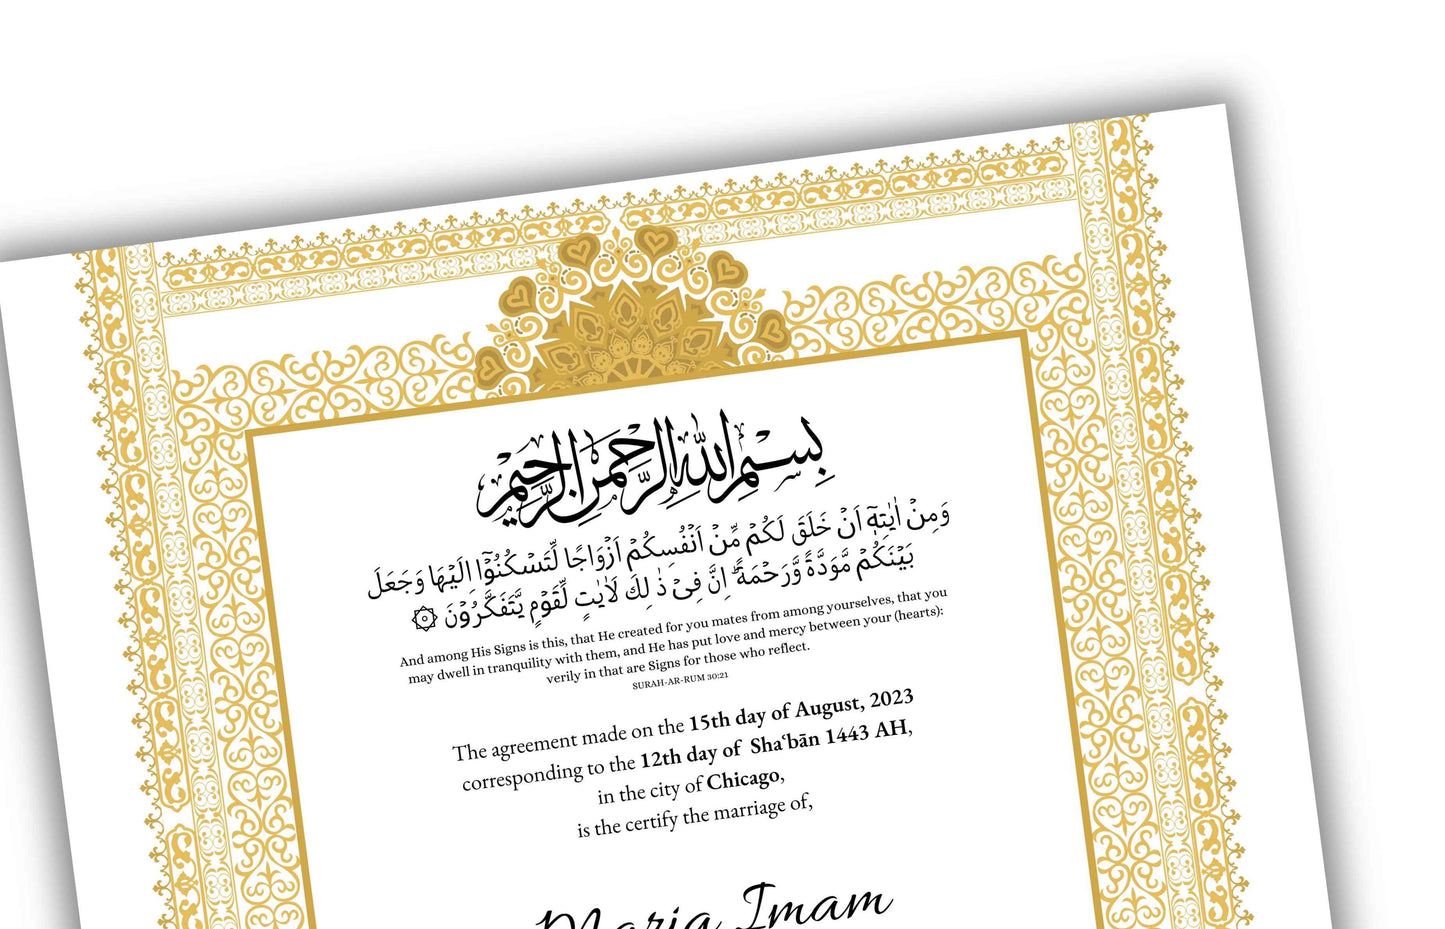 بِسْمِ اللهِ الرَّحْمٰنِ الرَّحِيْمِ
وَمِنْ اٰيٰتِهٖۤ اَنْ خَلَقَ لَكُمْ مِّنْ اَنْفُسِكُمْ اَزْوَاجًا لِّتَسْكُنُوْۤا اِلَيْهَا وَجَعَلَ
بَيْنَكُمْ مَّوَدَّةً وَّرَحْمَةً ؕ اِنَّ فِىْ ذٰ لِكَ لَاٰيٰتٍ لِّقَوْمٍ يَّتَفَكَّرُوْنَ ۞
And among His Signs is this, that He created for you mates from among yourselves, that you
may dwell in tranquility with them, and He has put love and mercy between your (hearts):
verily in that are Signs for those who reflect.
SURAH-AR-RUM 30:21
The agreement made on the 15th day of August, 2023
corresponding to the 12th day of Shaʿbān 1443 AH,
in the city of Chicago,
is the certify the marriage of,
Maria Imam